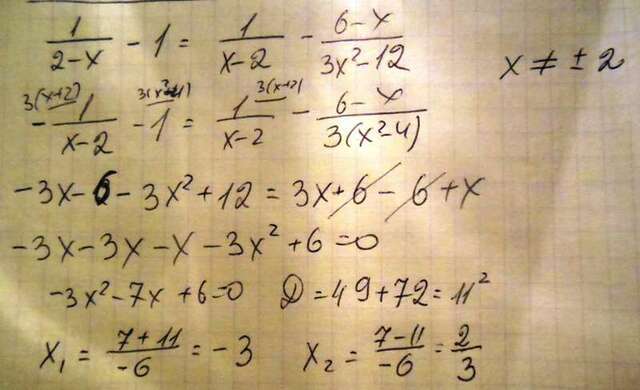 1/(2-x) - 1 = 1/(x-2) - (6-x)/(3x²-12)    x ≠ ± 2
3(x+2) 3(x²-4) 3(x+2)
- 1/(x-2) - 1 = 1/(x-2) - (6-x)/(3(x²-4))
-3x-6-3x²+12 = 3x+6-6+x
-3x-3x-x-3x²+6=0
-3x²-7x+6=0    D=49+72=11²
x₁ = (7+11)/(-6) = -3    x₂ = (7-11)/(-6) = 2/3